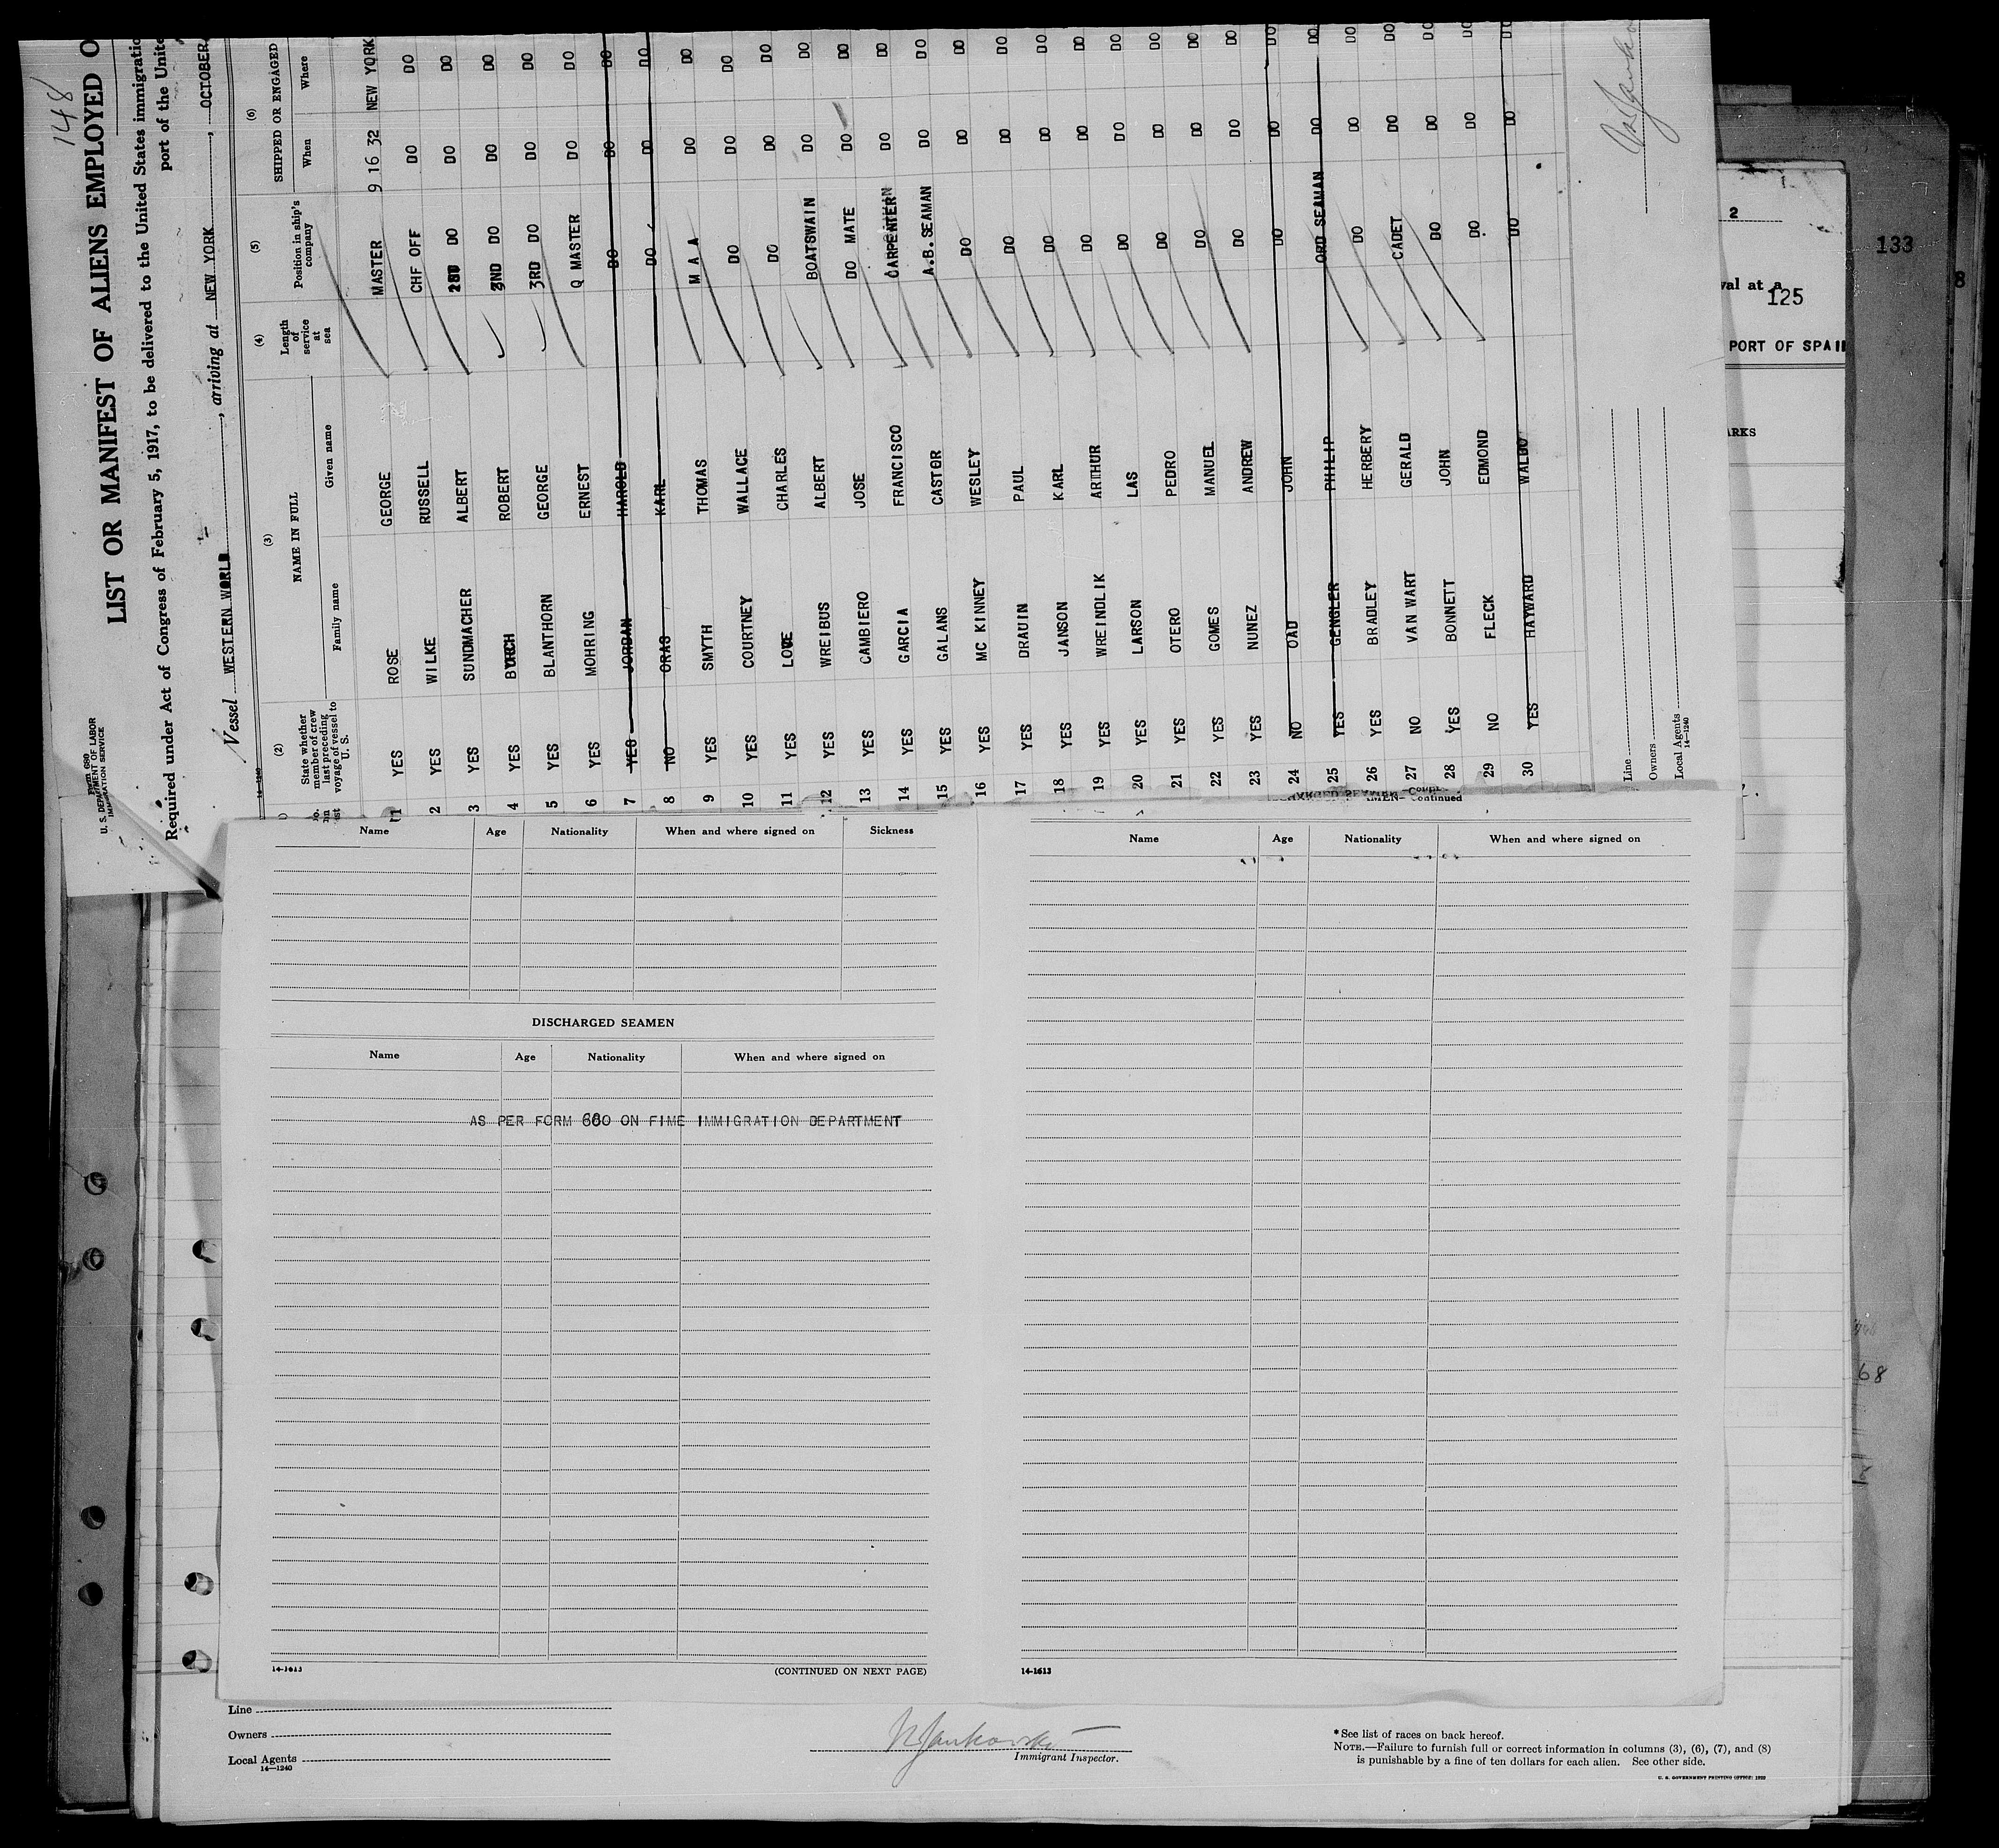 148
LIST OR MANIFEST OF ALIENS EMPLOYED O
Required under Act of Congress of February 5, 1917, to be delivered to the United States immigratio
port of the Unite
Form 680
U. S. DEPARTMENT OF LABOR
IMMIGRATION SERVICE
Vessel WESTERN WORLD, arriving at NEW YORK, OCTOBER
14-1240
(2) (3) (4) (5) (6)
State whether member of crew last preceding voyage of vessel to U. S.
NAME IN FULL
Family name Given name
Length of service at sea
Position in ship's company
SHIPPED OR ENGAGED
When Where
1 YES ROSE GEORGE MASTER 9 16 32 NEW YORK
2 YES WILKE RUSSELL CHF OFF DO DO
3 YES SUNDMACHER ALBERT DO DO DO
4 YES ROBERT 2ND DO DO DO
5 YES BLANTHORN GEORGE 3RD DO DO DO
6 YES MOHRING ERNEST Q MASTER DO DO
7 YES JORDAN HAROLD DO DO DO
8 NO ORAS KARL DO DO DO
9 YES SMYTH THOMAS M A A DO DO
10 YES COURTNEY WALLACE DO DO DO
11 YES CHARLES DO DO DO
12 YES WREIBUS ALBERT BOATSWAIN DO DO
13 YES CAMBIERO JOSE DO MATE DO DO
14 YES GARCIA FRANCISCO DO DO
15 YES GALANS CASTOR A.B. SEAMAN DO DO
16 YES MC KINNEY WESLEY DO DO DO
17 YES DRAUIN PAUL DO DO DO
18 YES JANSON KARL DO DO DO
19 YES WREINDLIK ARTHUR DO DO DO
20 YES LARSON LAS DO DO DO
21 YES OTERO PEDRO DO DO DO
22 YES GOMES MANUEL DO DO DO
23 YES NUNEZ ANDREW DO DO DO
24 NO OAD JOHN DO DO DO
25 YES GENGLER PHILIP ORD SEAMAN DO DO
26 YES BRADLEY HERBERY DO DO DO
27 NO VAN WART GERALD CADET DO DO
28 YES BONNETT JOHN DO DO DO
29 NO FLECK EDMOND DO. DO DO
30 YES HAYWARD WALDO DO DO DO
Line
Owners
Local Agents
14-1240
2
133
8
val at a
125
PORT OF SPAI
ARKS
68
Name Age Nationality When and where signed on Sickness
DISCHARGED SEAMEN
Name Age Nationality When and where signed on
AS PER FORM 680 ON FIME IMMIGRATION DEPARTMENT
14-1613 (CONTINUED ON NEXT PAGE)
SEAMEN—Continued
Name Age Nationality When and where signed on
14-1613
Line
Owners
Local Agents
14—1240
Immigrant Inspector.
*See list of races on back hereof.
NOTE.—Failure to furnish full or correct information in columns (3), (6), (7), and (8)
is punishable by a fine of ten dollars for each alien. See other side.